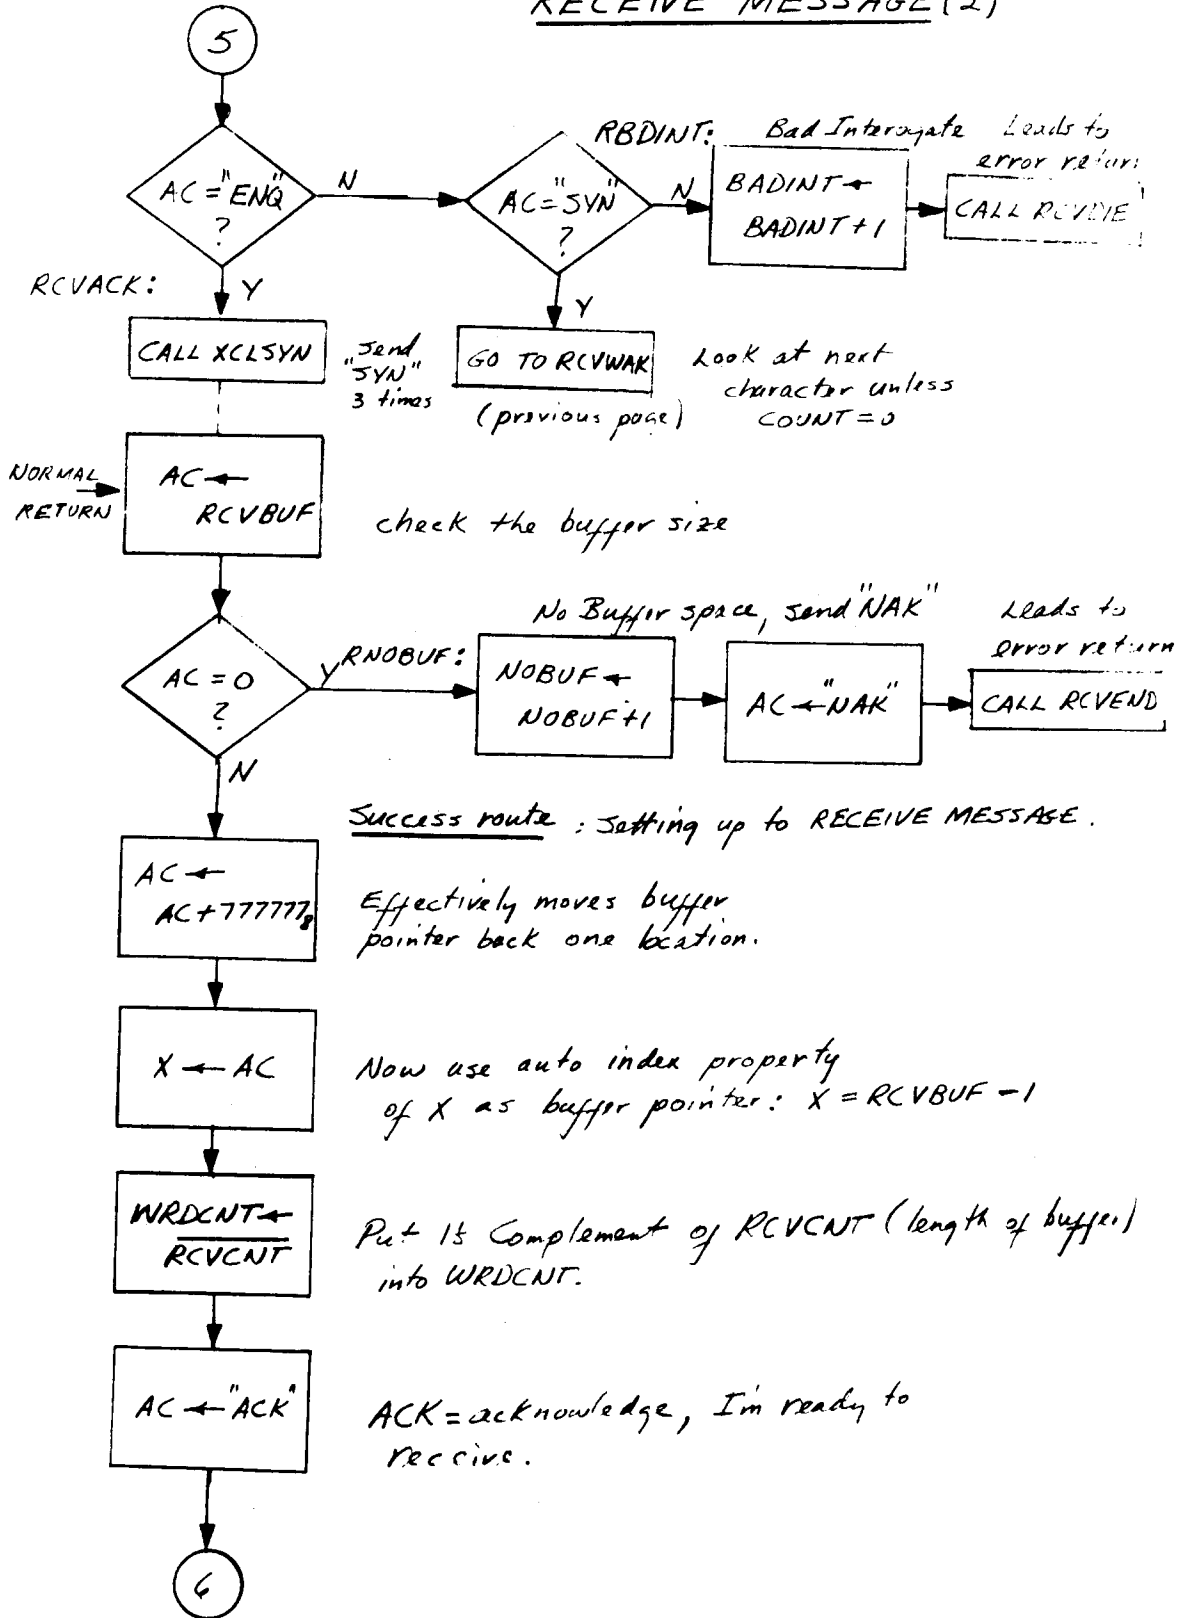 RECEIVE MESSAGE (2)
5
AC="ENQ"
?
N
AC="SYN"
?
N
RBDINT:
Bad Interogate
BADINT←
BADINT+1
Leads to
error return
CALL RCVDIE
RCVACK:
Y
CALL XCLSYN
"Send
"SYN"
3 times
Y
GO TO RCVWAK
(previous page)
Look at next
character unless
COUNT=0
NORMAL
RETURN
AC←
RCVBUF
check the buffer size
AC=0
?
Y
RNOBUF:
No Buffer space, send "NAK"
NOBUF←
NOBUF+1
AC←"NAK"
Leads to
error return
CALL RCVEND
N
Success route : Setting up to RECEIVE MESSAGE.
AC←
AC+777777₈
Effectively moves buffer
pointer back one location.
X←AC
Now use auto index property
of X as buffer pointer: X=RCVBUF-1
WRDCNT←
RCVCNT
Put 1's Complement of RCVCNT (length of buffer)
into WRDCNT.
AC←"ACK"
ACK=acknowledge, I'm ready to
receive.
6